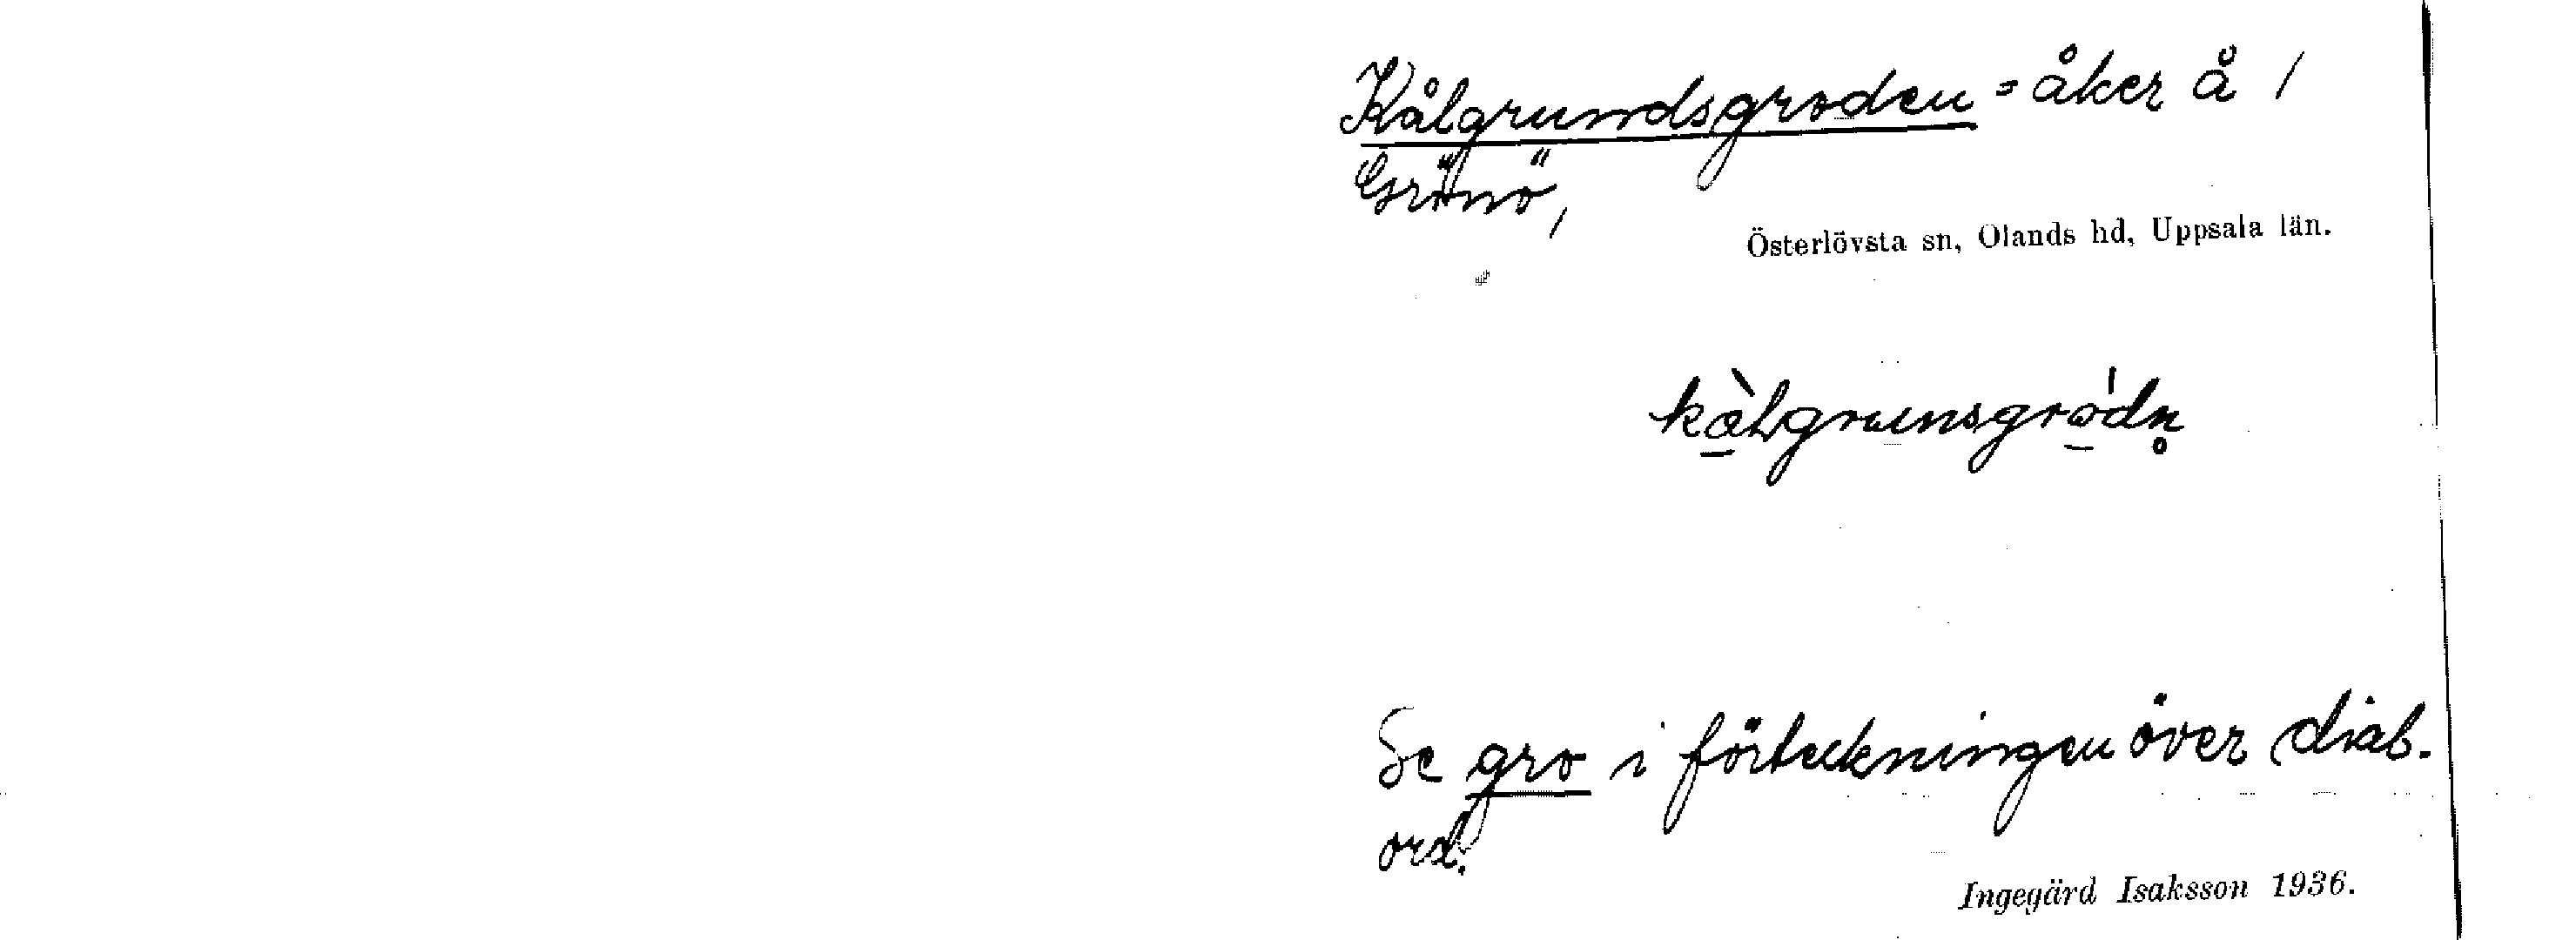 Kålgrundsgroden = åker å /
Grönö,
Österlövsta sn, Olands hd, Uppsala län.
kò̱Lgrunsgrώ̱dn̥
Se gro i förteckningen över dial.
ord.
Ingegärd Isaksson 1936.